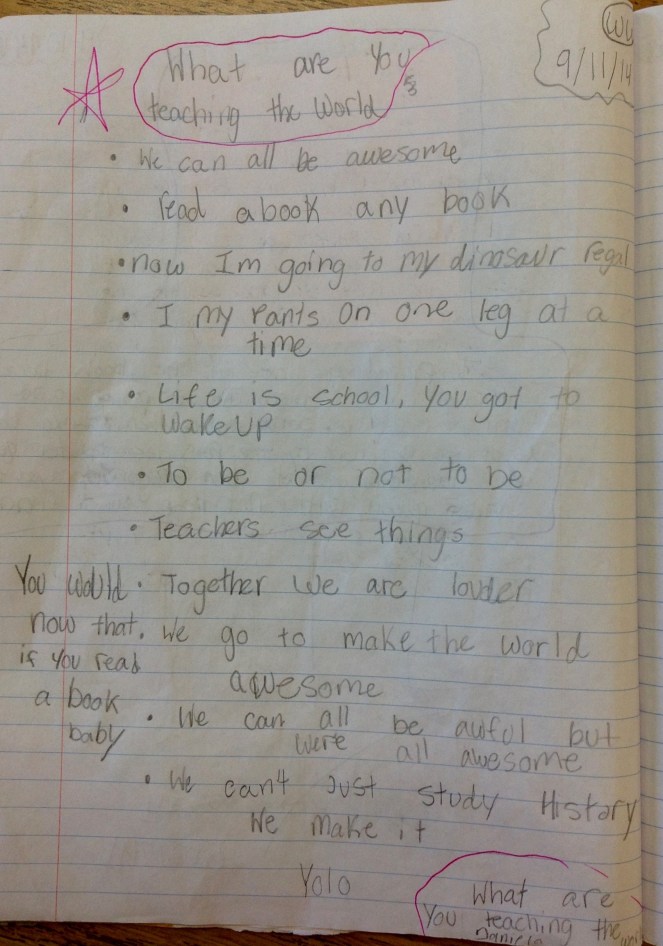 What are You
teaching the World
9/11/14
• We can all be awesome
• read a book any book
• now Im going to my dinosaur regal
• I my Pants on one leg at a
time
• Life is school, you got to
Wake UP
• To be or not to be
• Teachers see things
• Together we are louder
• We go to make the world
awesome
You would
now that
if you read
a book
baby
• We can all be awful but
were all awesome
• We can't Just study History
We make it
Yolo
What are
You teaching the